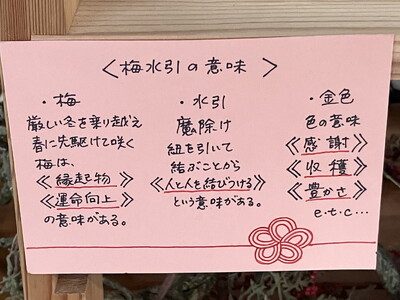 〈梅水引の意味〉
・梅
厳しい冬を乗り越え
春に先駆けて咲く
梅は、
《縁起物》
《運命向上》
の意味がある。
・水引
魔除け
紐を引いて
結ぶことから
《人と人を結びつける》
という意味がある。
・金色
色の意味
《感謝》
《収穫》
《豊かさ》
e.t.c...